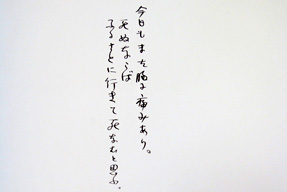 今日もまた胸に痛みあり。
死ぬならば
ふるさとに行きて死なむと思ふ。